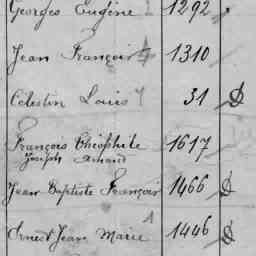 Georges Eugène 1292
Jean François 1310
Célestin Louis 31
François Théophile 1617
Joseph Amand
Jean Baptiste François 1466
Ernest Jean Marie 1446